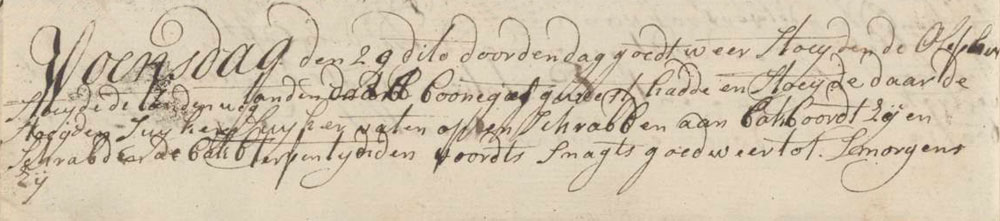 Woensdag den 29 dito door den dag goedt weer Stoeyden de
Stoeyde de landen daar Boonegat geweest hadde en Stoeyde daar de
Stoeyden Suyker vaten op en Schrabben aan bakboordt Zij en
Schrabde terpentynden voordts Snagts goed weer tot Smorgens
Zij